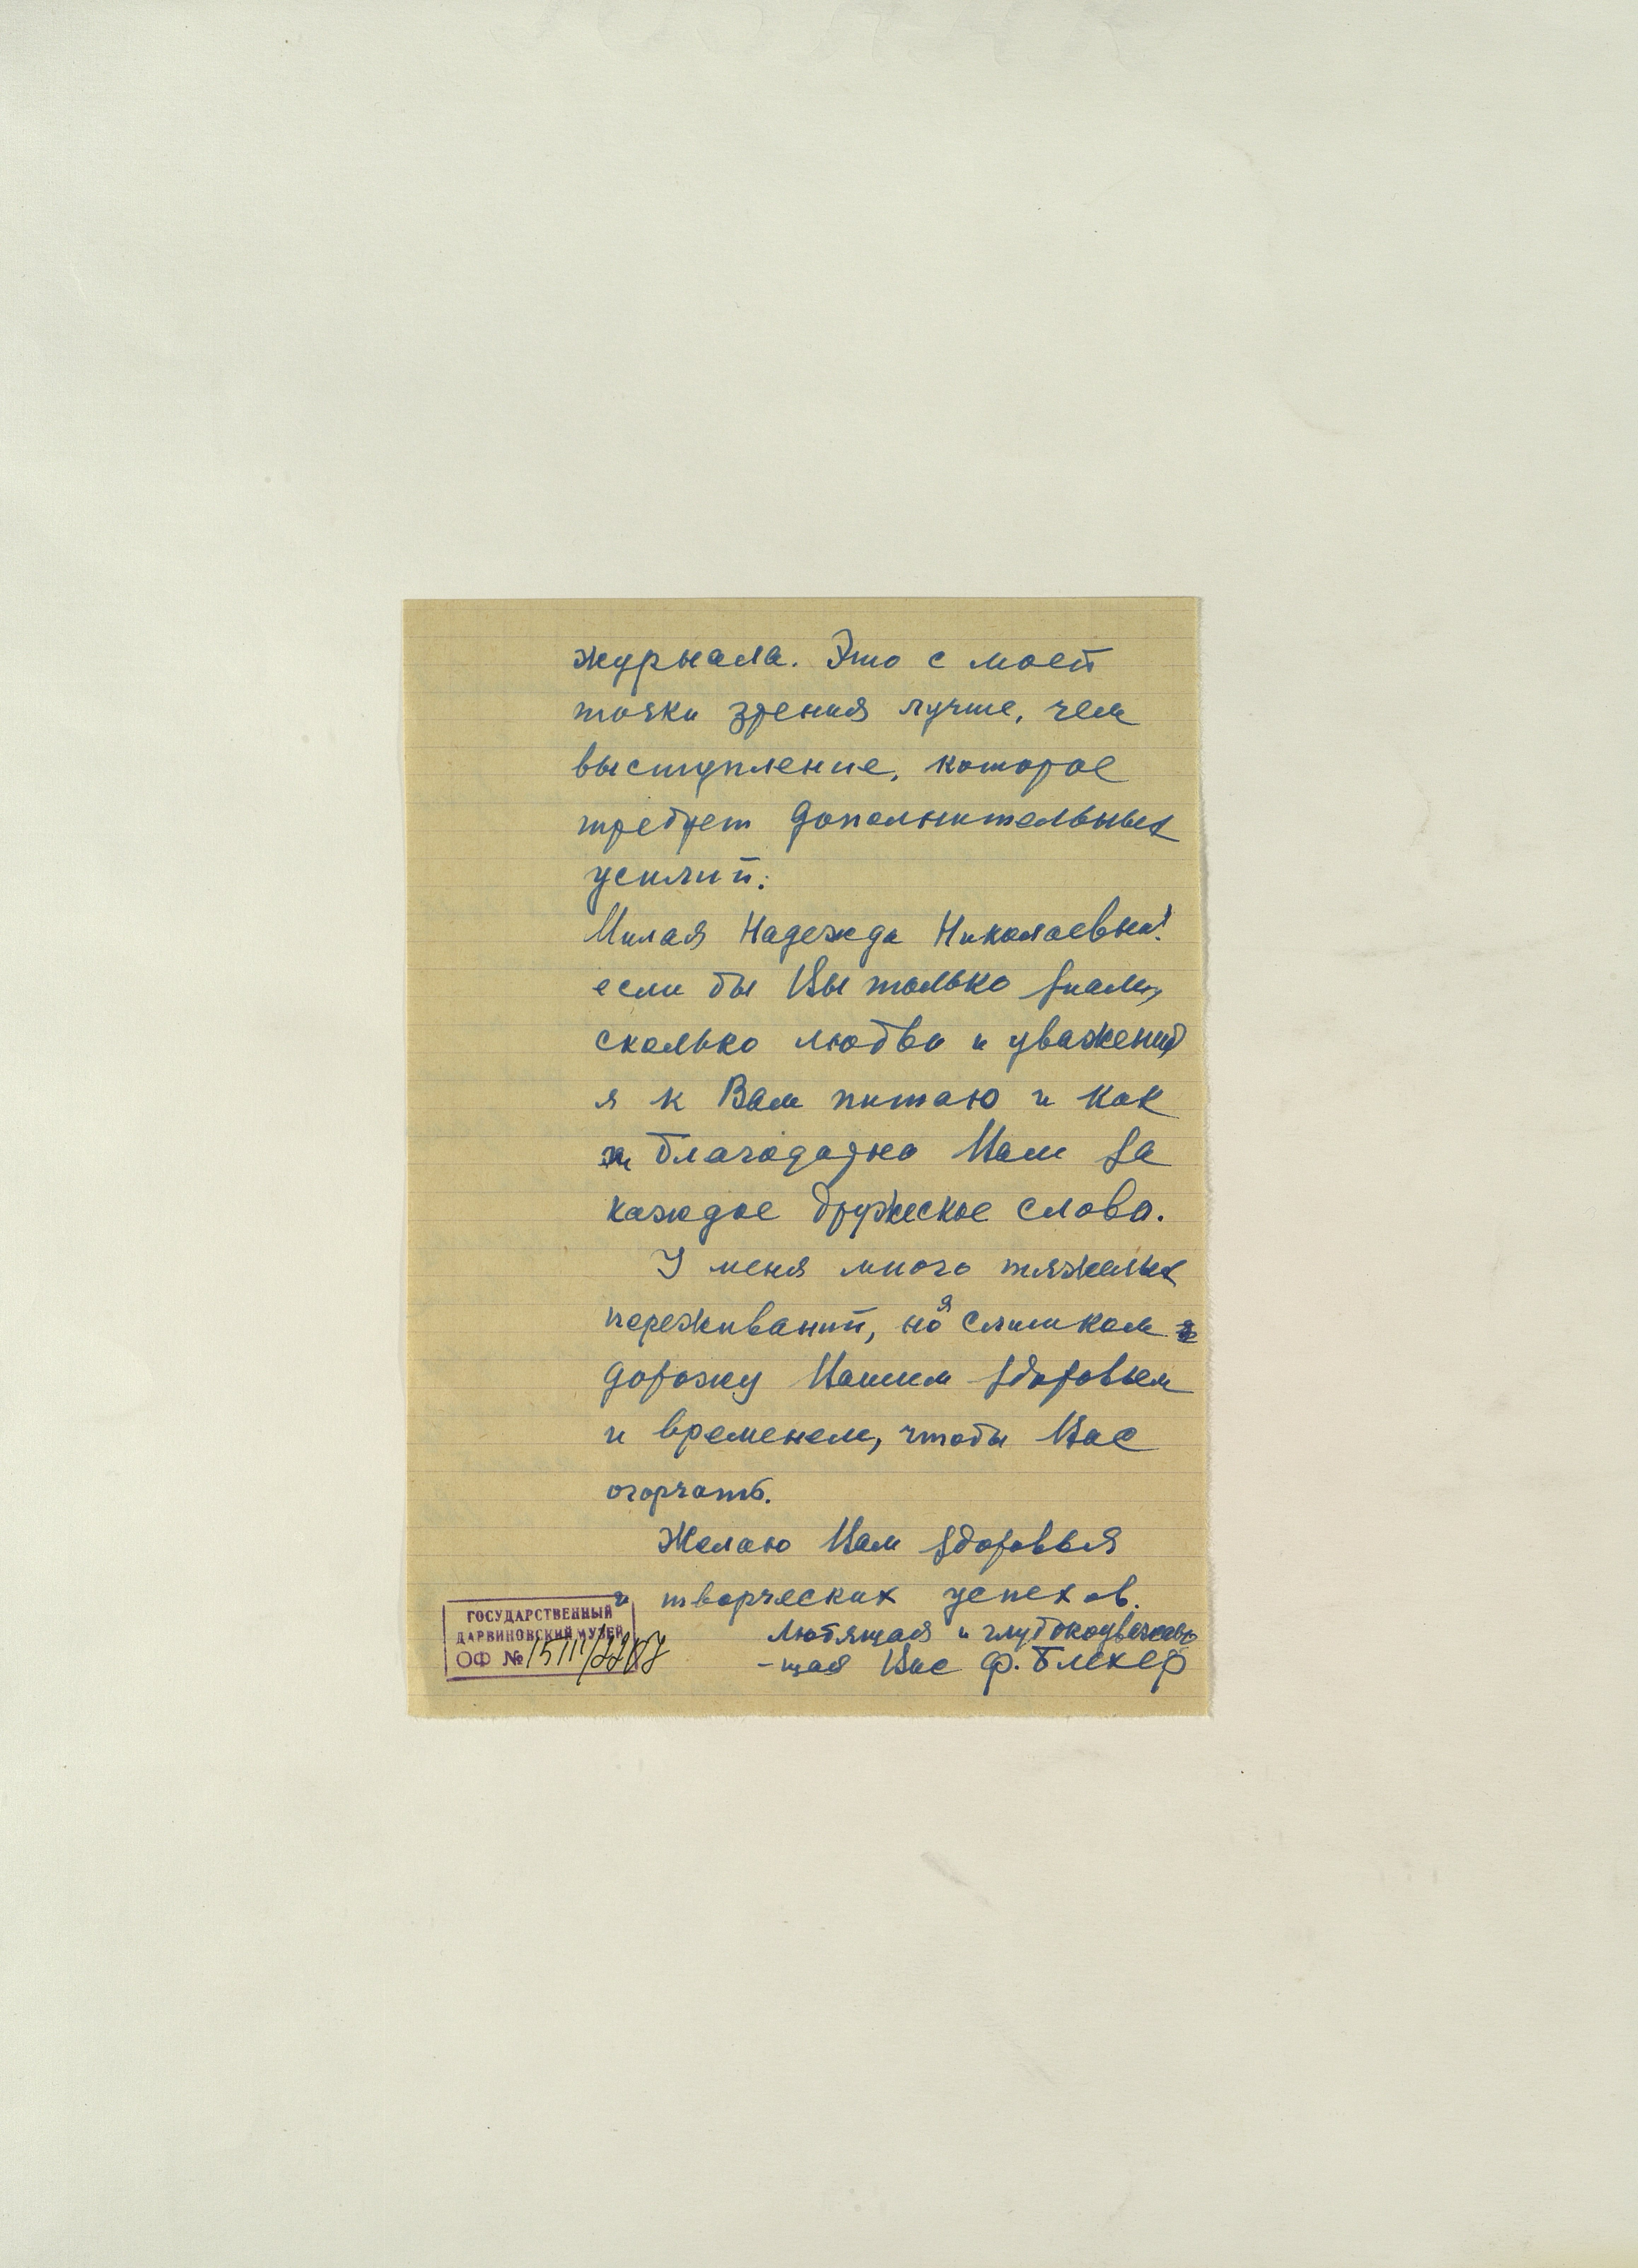 журнала. Это с моей
точки зрения лучше, чем
выступление, которое
требует дополнительных
усилий.
Милая Надежда Николаевна!
если бы Вы только знали,
сколько любви и уважения
я к Вам питаю и как
благодарна Вам за
каждое дружеское слово.
У меня много тяжелых
переживаний, но я слишком
дорожу Вашим здоровьем
и временем, чтобы Вас
огорчать.
Желаю Вам здоровья
и творческих успехов.
Любящая и глубокоуважаю-
-щая Вас Ф. Блехер
ГОСУДАРСТВЕННЫЙ
ДАРВИНОВСКИЙ МУЗЕЙ
ОФ №